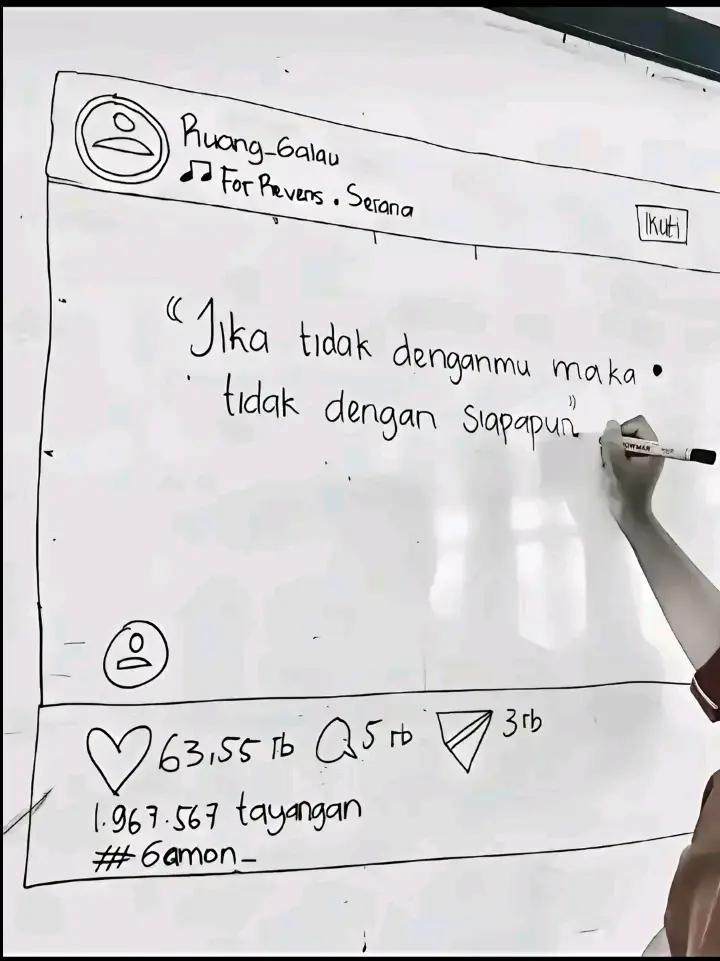 Ruang_Galau
For Revens . Serana
Ikuti
"Jika tidak denganmu maka
tidak dengan siapapun"
63,55 rb 5 rb 3rb
1.967.567 tayangan
#Gamon_